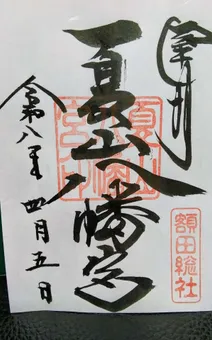 奉拝
夏山八幡宮
令和八年四月五日
額田総社